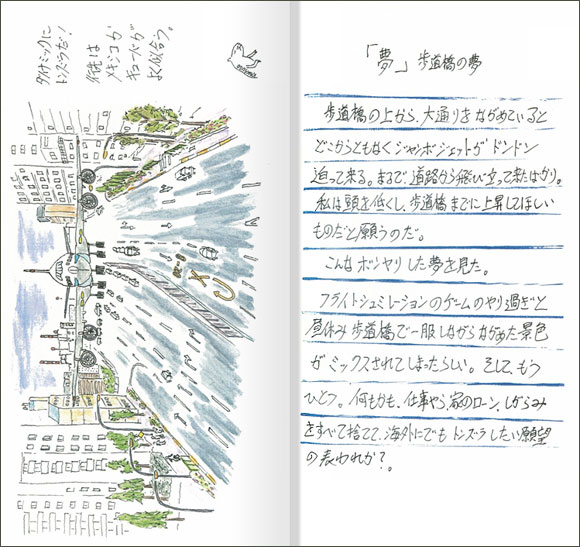 ダイナミックに
トンズラだ!
行先は
メキシコか
キューバが
よく似合う。
「夢」 歩道橋の夢
歩道橋の上から、大通りをながめていると
どこからともなくジャンボジェットがドンドン
迫って来る。まるで道路から飛び立って来たばかり。
私は頭を低くし、歩道橋までに上昇してほしい
ものだと願うのだ。
こんなボンヤリした夢を見た。
フライトシュミレーションのゲームのやり過ぎと
昼休み歩道橋で一服しながらながめた景色
がミックスされてしまったらしい。そして、もう
ひとつ。何もかも、仕事やら、家のローン、しがらみ
をすべて捨てて、海外にでもトンズラしたい願望
の表われか?。